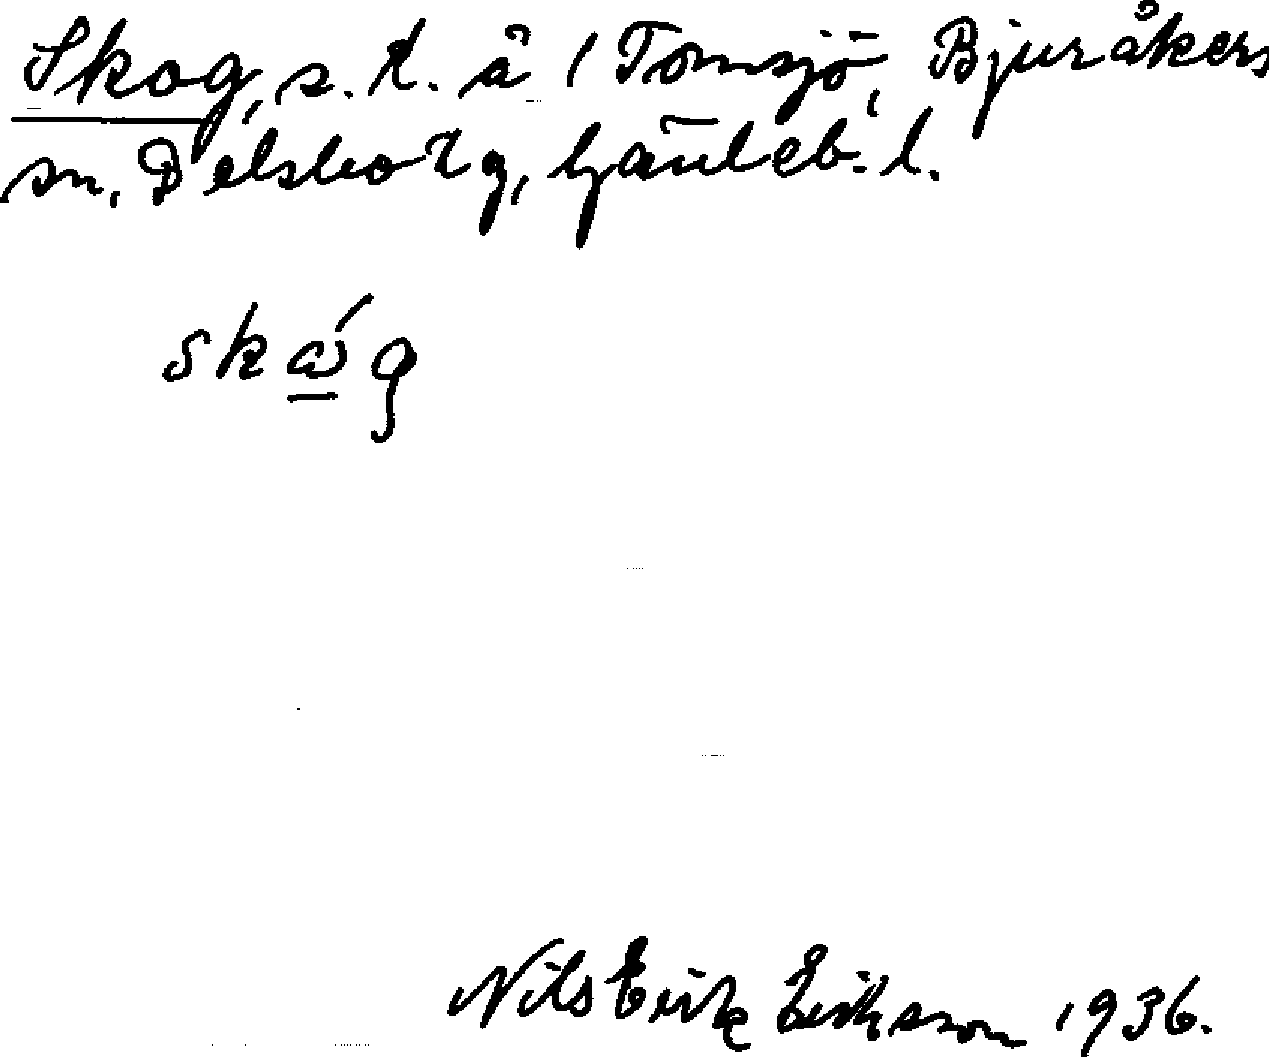 Skog, s. t. å i Tomsjö, Bjuråkers
sn. Delsbo tg, Gävleb. l.
skág
Nils Erik Eriksson 1936.